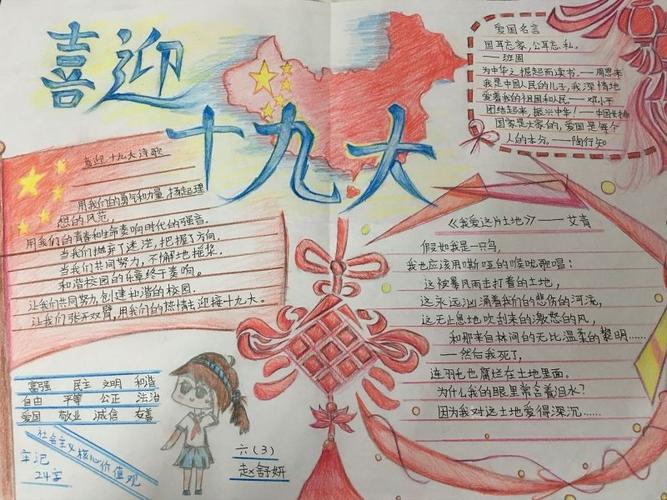 喜迎
十九大
爱国名言
国耳忘家，公耳忘私。
——班固
为中华之掘起而读书。——周恩来
我是中国人民的儿子，我深情地
爱着我的祖国和人民——邓小平
团结起来，振兴中华！——中国女排
国家是大家的，爱国是每个
人的本分。——陶行知
喜迎十九大诗歌
用我们的勇气和力量，扬起理
想的风范，
用我们的青春和生命奏响时代的强音，
当我们抛弃了迷茫，把握了方向，
当我们共同努力，不懈地摇桨，
和谐校园的乐章终于奏响。
让我们共同努力，创建和谐的校园，
让我们张开双臂，用我们的热情去迎接十九大。
《我爱这片土地》——艾青
假如我是一只鸟，
我也应该用嘶哑的喉咙歌唱：
这被暴风雨击打着的土地，
这永远汹涌着我们的悲伤的河流，
这无止息地吹刮来的激怒的风，
和那来自林间的无比温柔的黎明……
——然后我死了，
连羽毛也腐烂在土地里面。
为什么我的眼里常含着泪水？
因为我对这土地爱得深沉……
富强 民主 文明 和谐
自由 平等 公正 法治
爱国 敬业 诚信 友善
社会主义核心价值观
牢记
24字
六（3）
赵舒妍